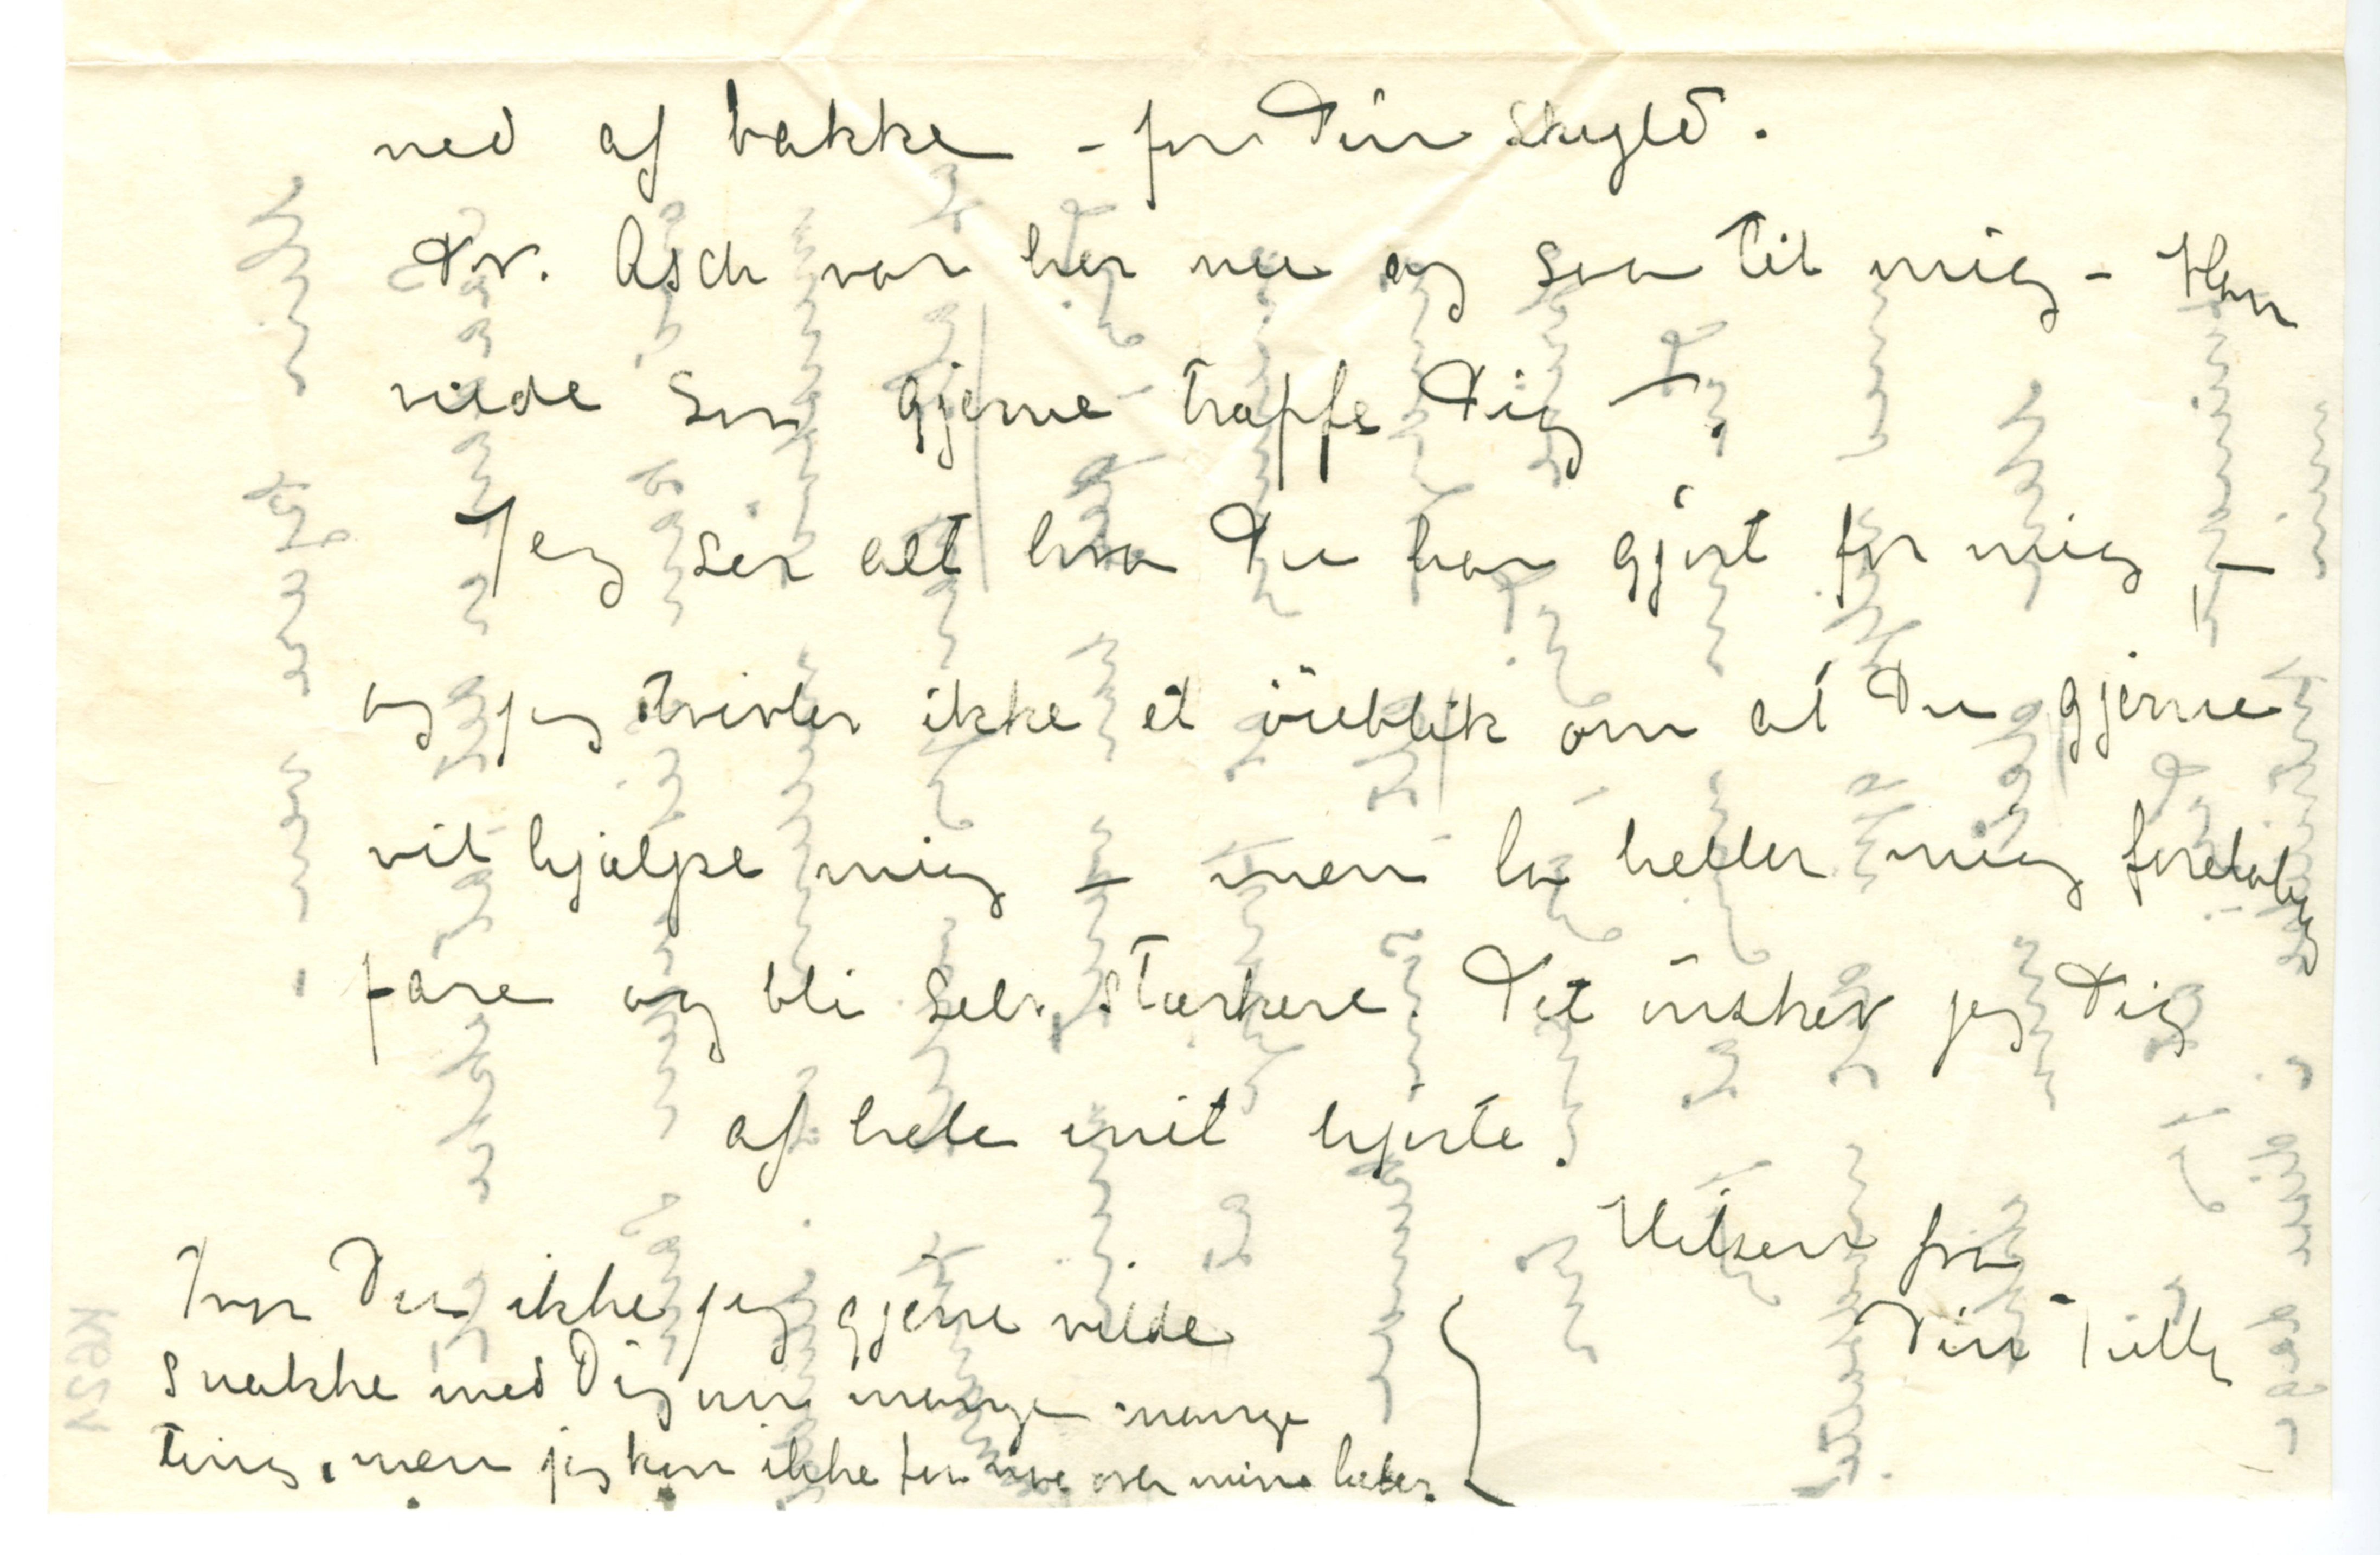 ned af bakke – for Din skyld.
Dr. Asch var her nu og saa til mig – Han
vilde saa gjerne træffe Dig –
Jeg ser alt hva Du har gjört for mig –
og jeg tvivler ikke et öieblik om at Du gjerne
vil hjælpe mig – men la heller mig foreløbig
fare og bli selv stærkere. Det önsker jeg Dig
af hele mit hjerte.
Hilsen fra
Din Tulla
Tror Du ikke jeg gjerne vilde
snakke med Dig om mange mange
ting, men jeg kan ikke over mine læber.